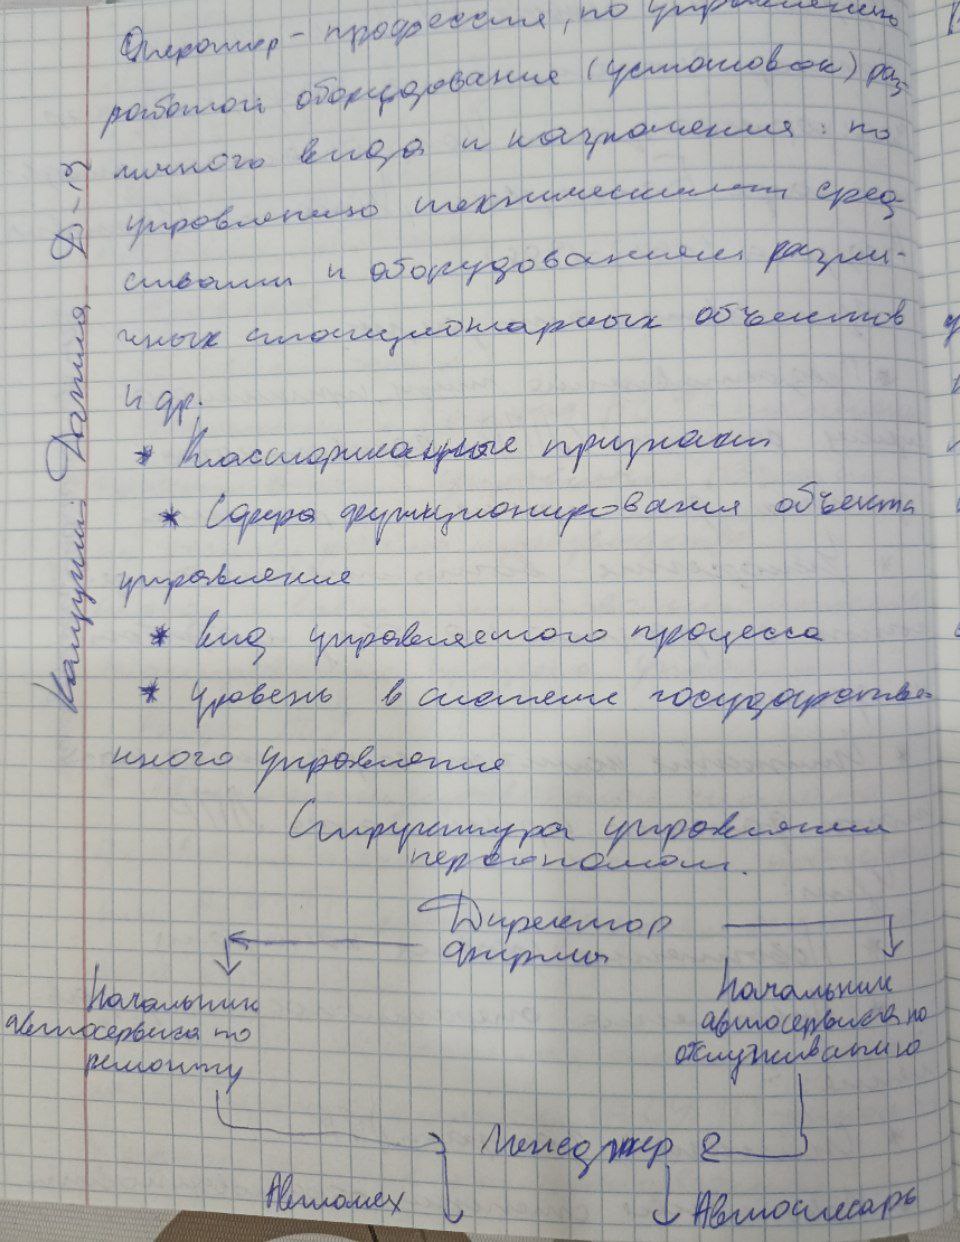 Оператор - профессия, по управлению
работой оборудование (установок) раз-
личного вида и назначения: по
управлению техническими сред-
ствами и оборудованием разли-
чных стационарных объектов
и др.
* Классификационные признаки
* Сфера функционирования объекта
управление
* Вид управляемого процесса
* уровень в системе государстве-
нного управление
Структура управления
персоналом.
Директор
фирмы
Начальник
автосервиса по
ремонту
Начальник
автосервиса по
обслуживанию
Менеджер
Автомех
Автослесарь
Данила Д-13